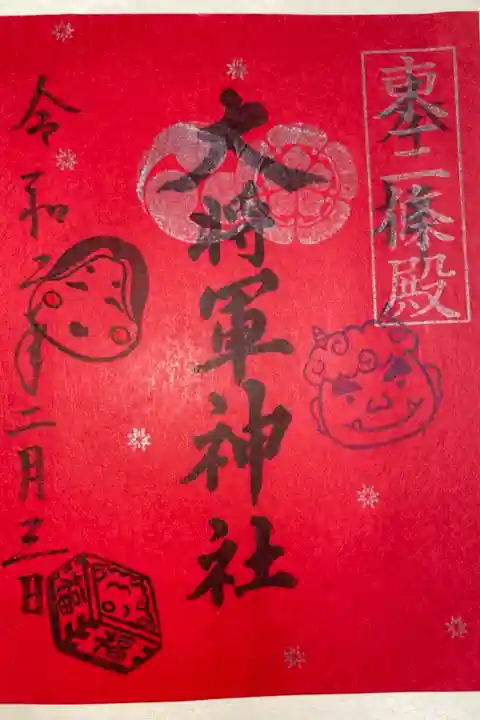 東三條殿
大将軍神社
令和 年二月三日
福